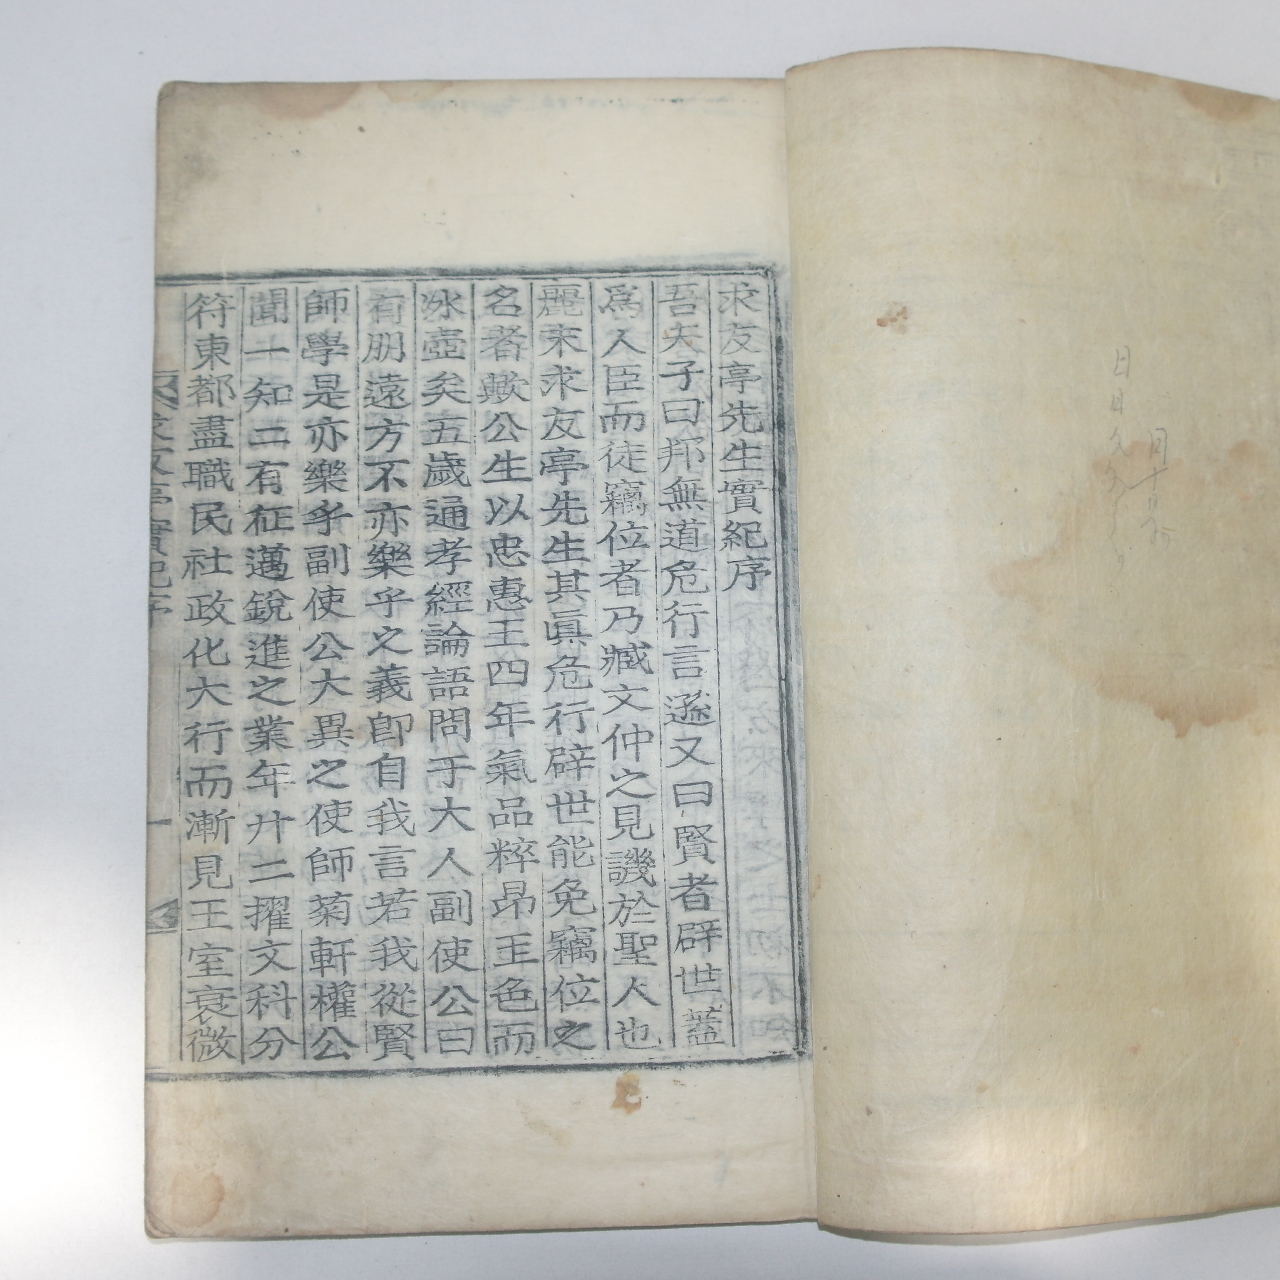 求友亭先生實紀序
吾夫子曰邦無道危行言遜又曰賢者辟世蓋
爲人臣而徒竊位者乃臧文仲之見譏於聖人也
麗末求友亭先生其眞危行辟世能免竊位之
名者歟公生以忠惠王四年氣品粹昂玉色而
氷壺矣五歲通孝經論語問于大人副使公曰
有朋遠方不亦樂乎之義卽自我言若我從賢
師學是亦樂乎副使公大異之使師菊軒權公
聞一知二有征邁銳進之業年廿二擢文科分
符東都盡職民社政化大行而漸見王室衰微
求友亭實紀序
一